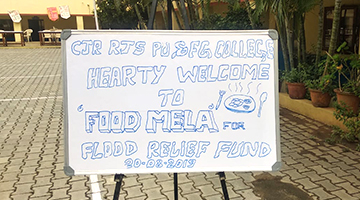 CJR RJS PU & FG COLLEGE
HEARTY WELCOME
TO
"FOOD MELA" FOR
FLOOD RELIEF FUND
30-08-2019